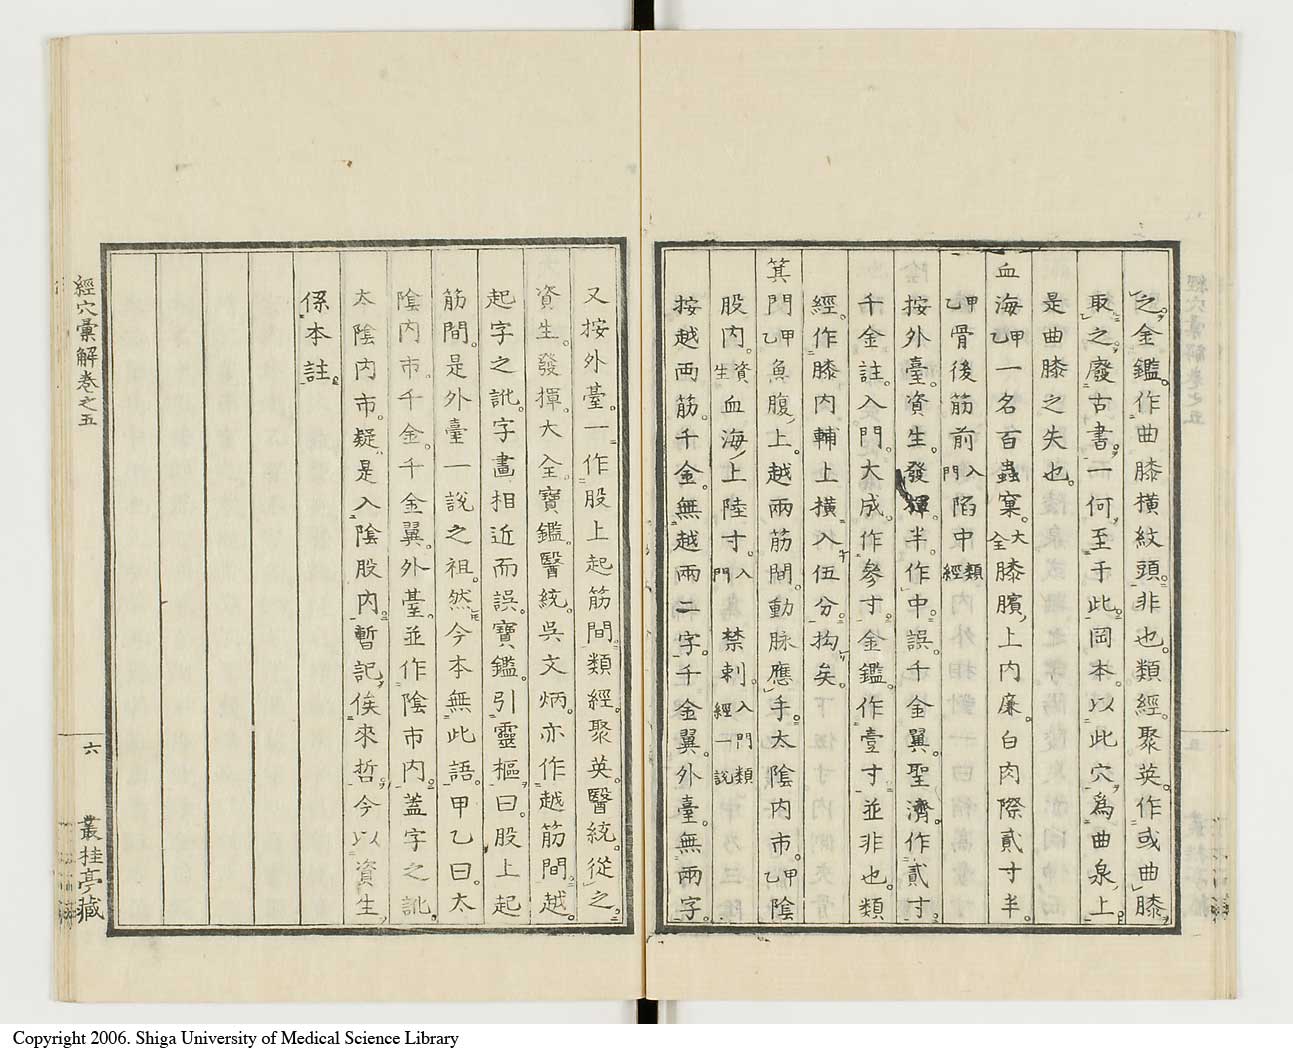 之。金鑑。作曲膝橫紋頭。非也。類經。聚英。作或曲膝
取之。廢古書。一何至于此。岡本。以此穴為曲泉上
是曲膝之失也。
血海甲乙一名百蟲窠。大全膝臏上內廉。白肉際貳寸半。
甲乙骨後筋前入門陷中類經
按外臺。資生。發揮。半作中。誤。千金翼。聖濟作貳寸。
千金註。入門。大成。作參寸。金鑑。作壹寸。並非也。類
經。作膝內輔上橫入伍分。拘矣。
箕門甲乙魚腹上。越兩筋間。動脉應手。太陰內市。甲乙陰
股內。資生血海上陸寸。入門禁刺。入門類經一說
按越兩筋。千金。無越兩二字。千金翼。外臺。無兩字
又按外臺。一作股上起筋間。類經。聚英。醫統。從之。
資生。發揮。大全。寶鑑。醫統。吳文炳。亦作越筋間。越
起字之訛。字畫相近而誤。寶鑑。引靈樞曰。股上起
筋間。是外臺一說之祖。然今本無此語。甲乙曰。太
陰內市。千金。千金翼。外臺。並作陰市內。蓋字之訛。
太陰內市。疑是入陰股內。暫記。俟來哲。今以資生
係本註。
經穴彙解卷之五
六
叢桂亭藏
Copyright 2006. Shiga University of Medical Science Library